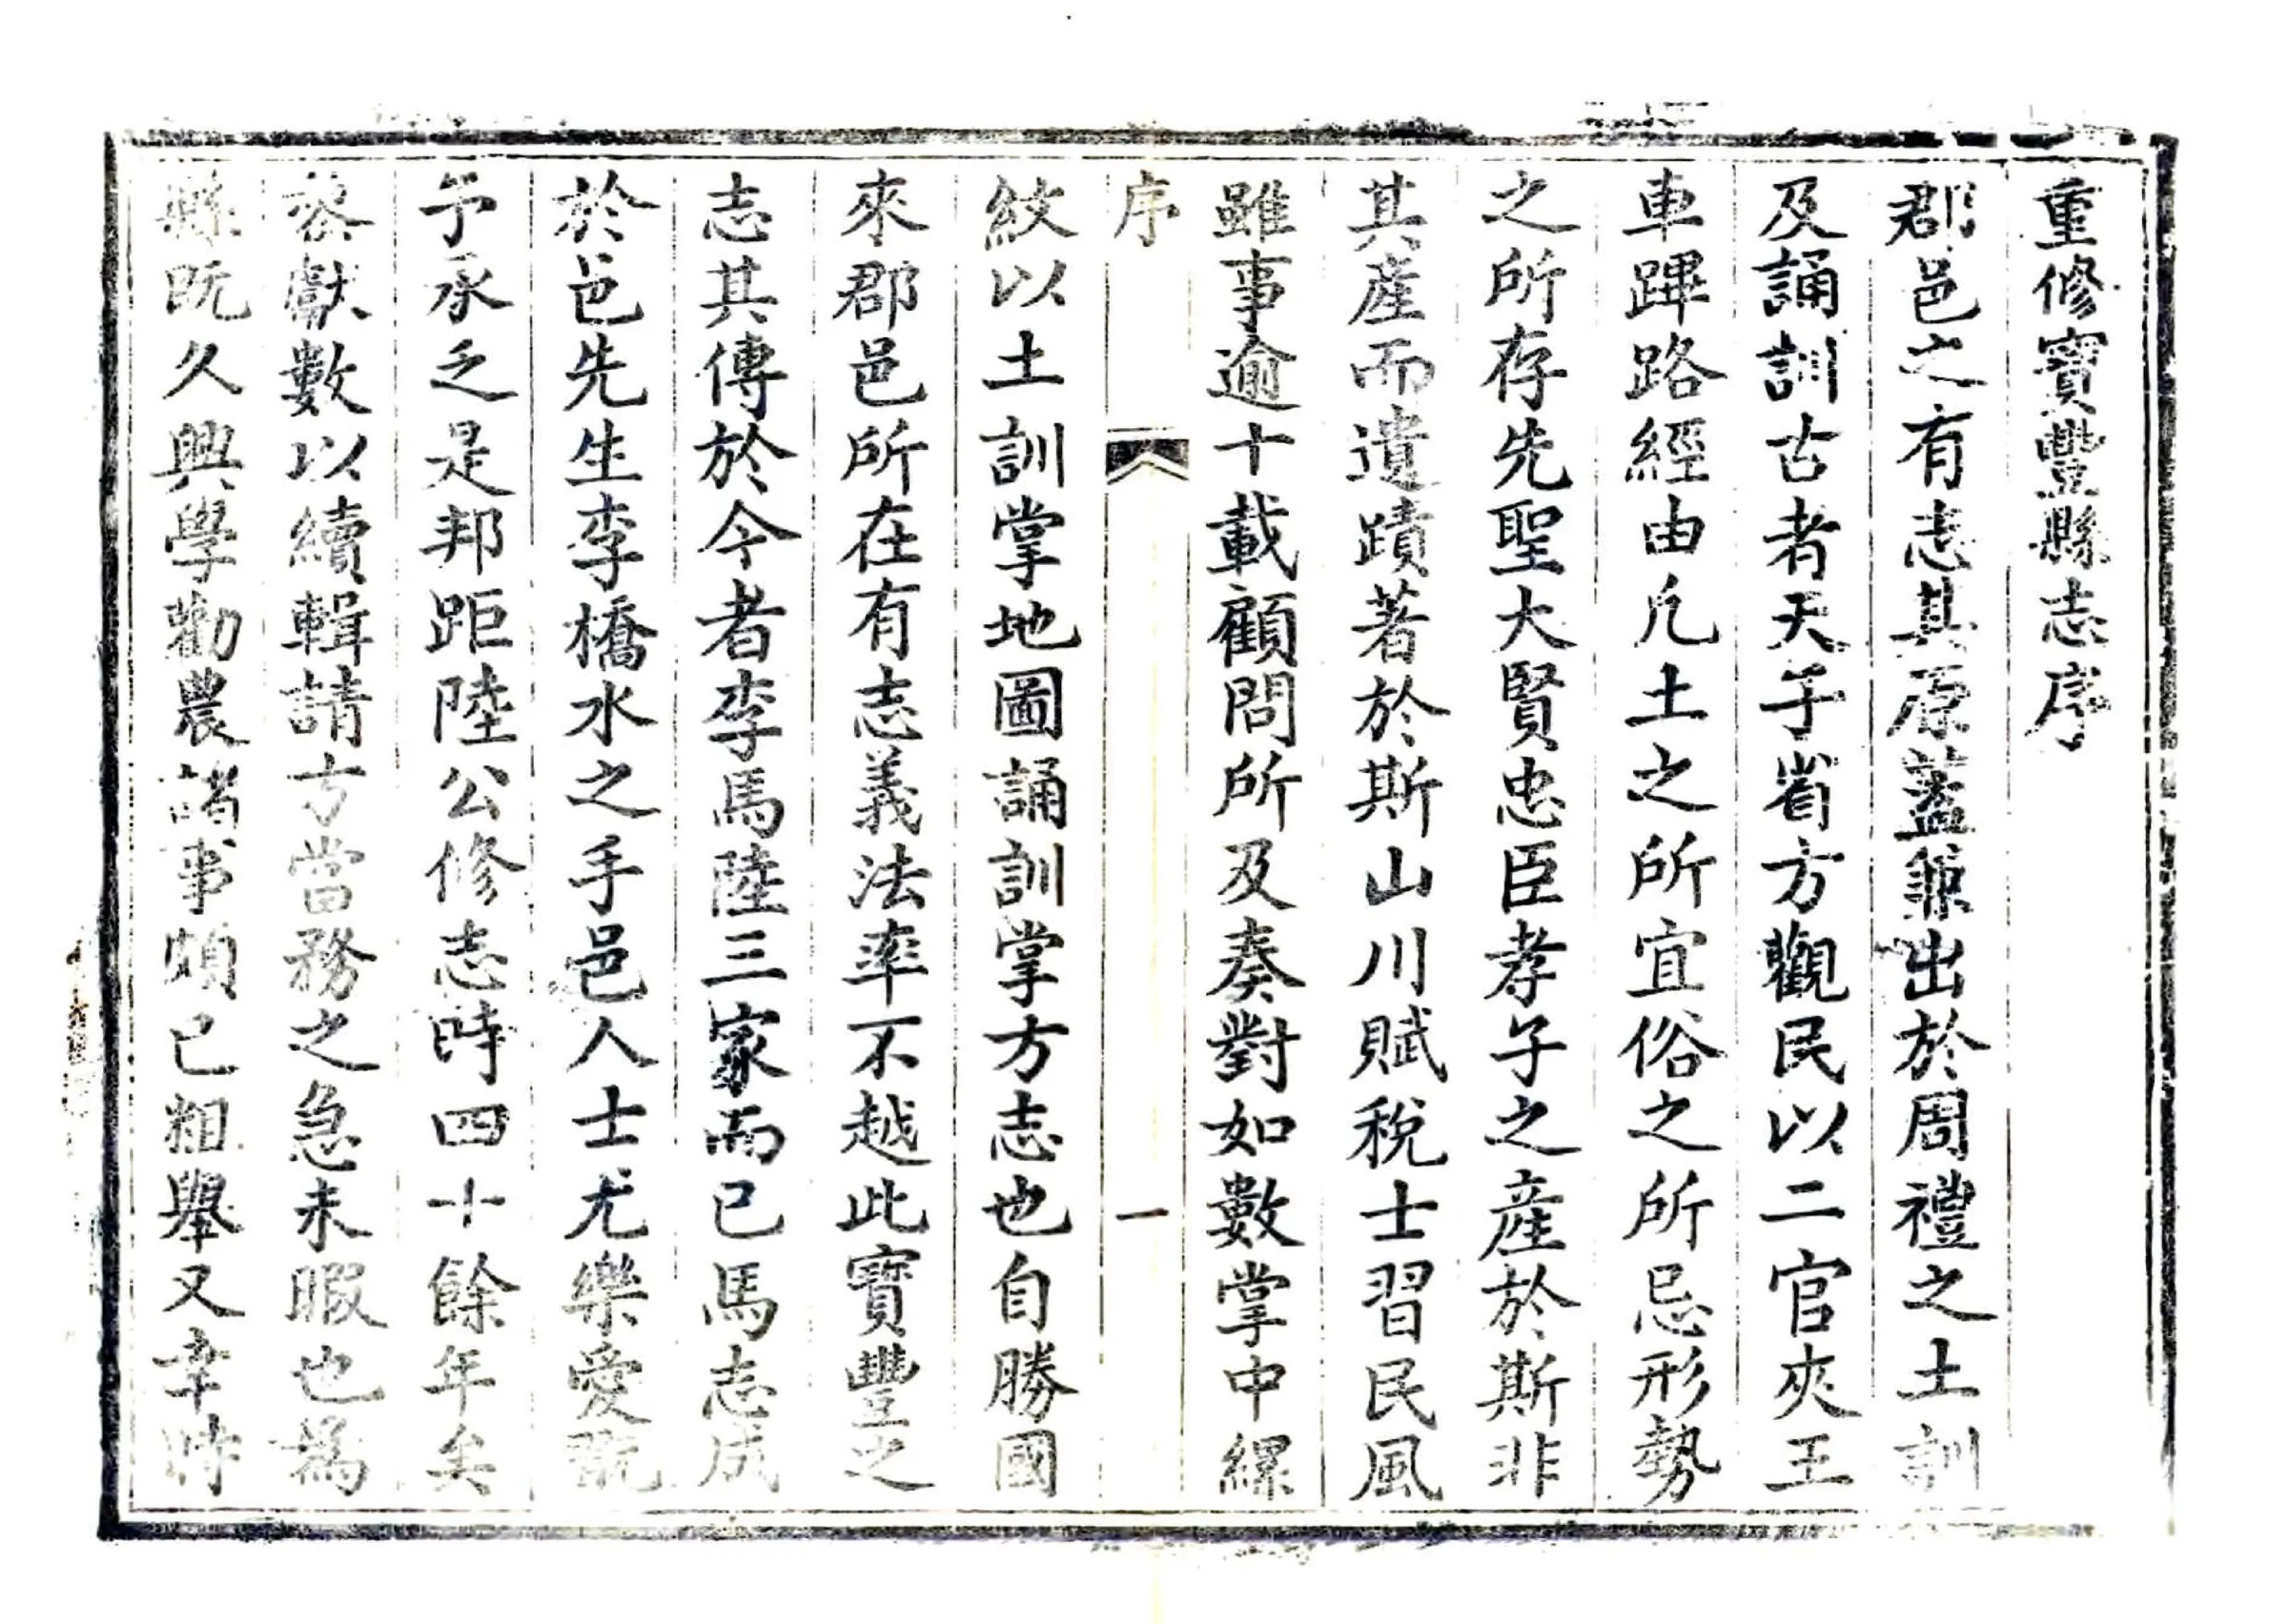 重修寶豐縣志序
郡邑之有志其原蓋出於周禮之土訓
及誦訓古者天子省方觀民以二官夾王
車蹕路經由凡土之所宜俗之所忌形勢
之所存先聖大賢忠臣孝子之產於斯非
其產而遺蹟著於斯山川賦稅士習民風
雖事逾十載顧問所及奏對如數掌中縲
序 一
紋以土訓掌地圖誦訓掌方志也自勝國
來郡邑所在有志義法率不越此寶豐之
志其傳於今者李馬陸三家而已馬志成
於邑先生李橋水之手邑人士尤樂愛翫
予承乏是邦距陸公修志時四十餘年矣
獻數以續輯請方當務之急未暇也為
縣既久興學勸農諸事頗已粗舉又幸時